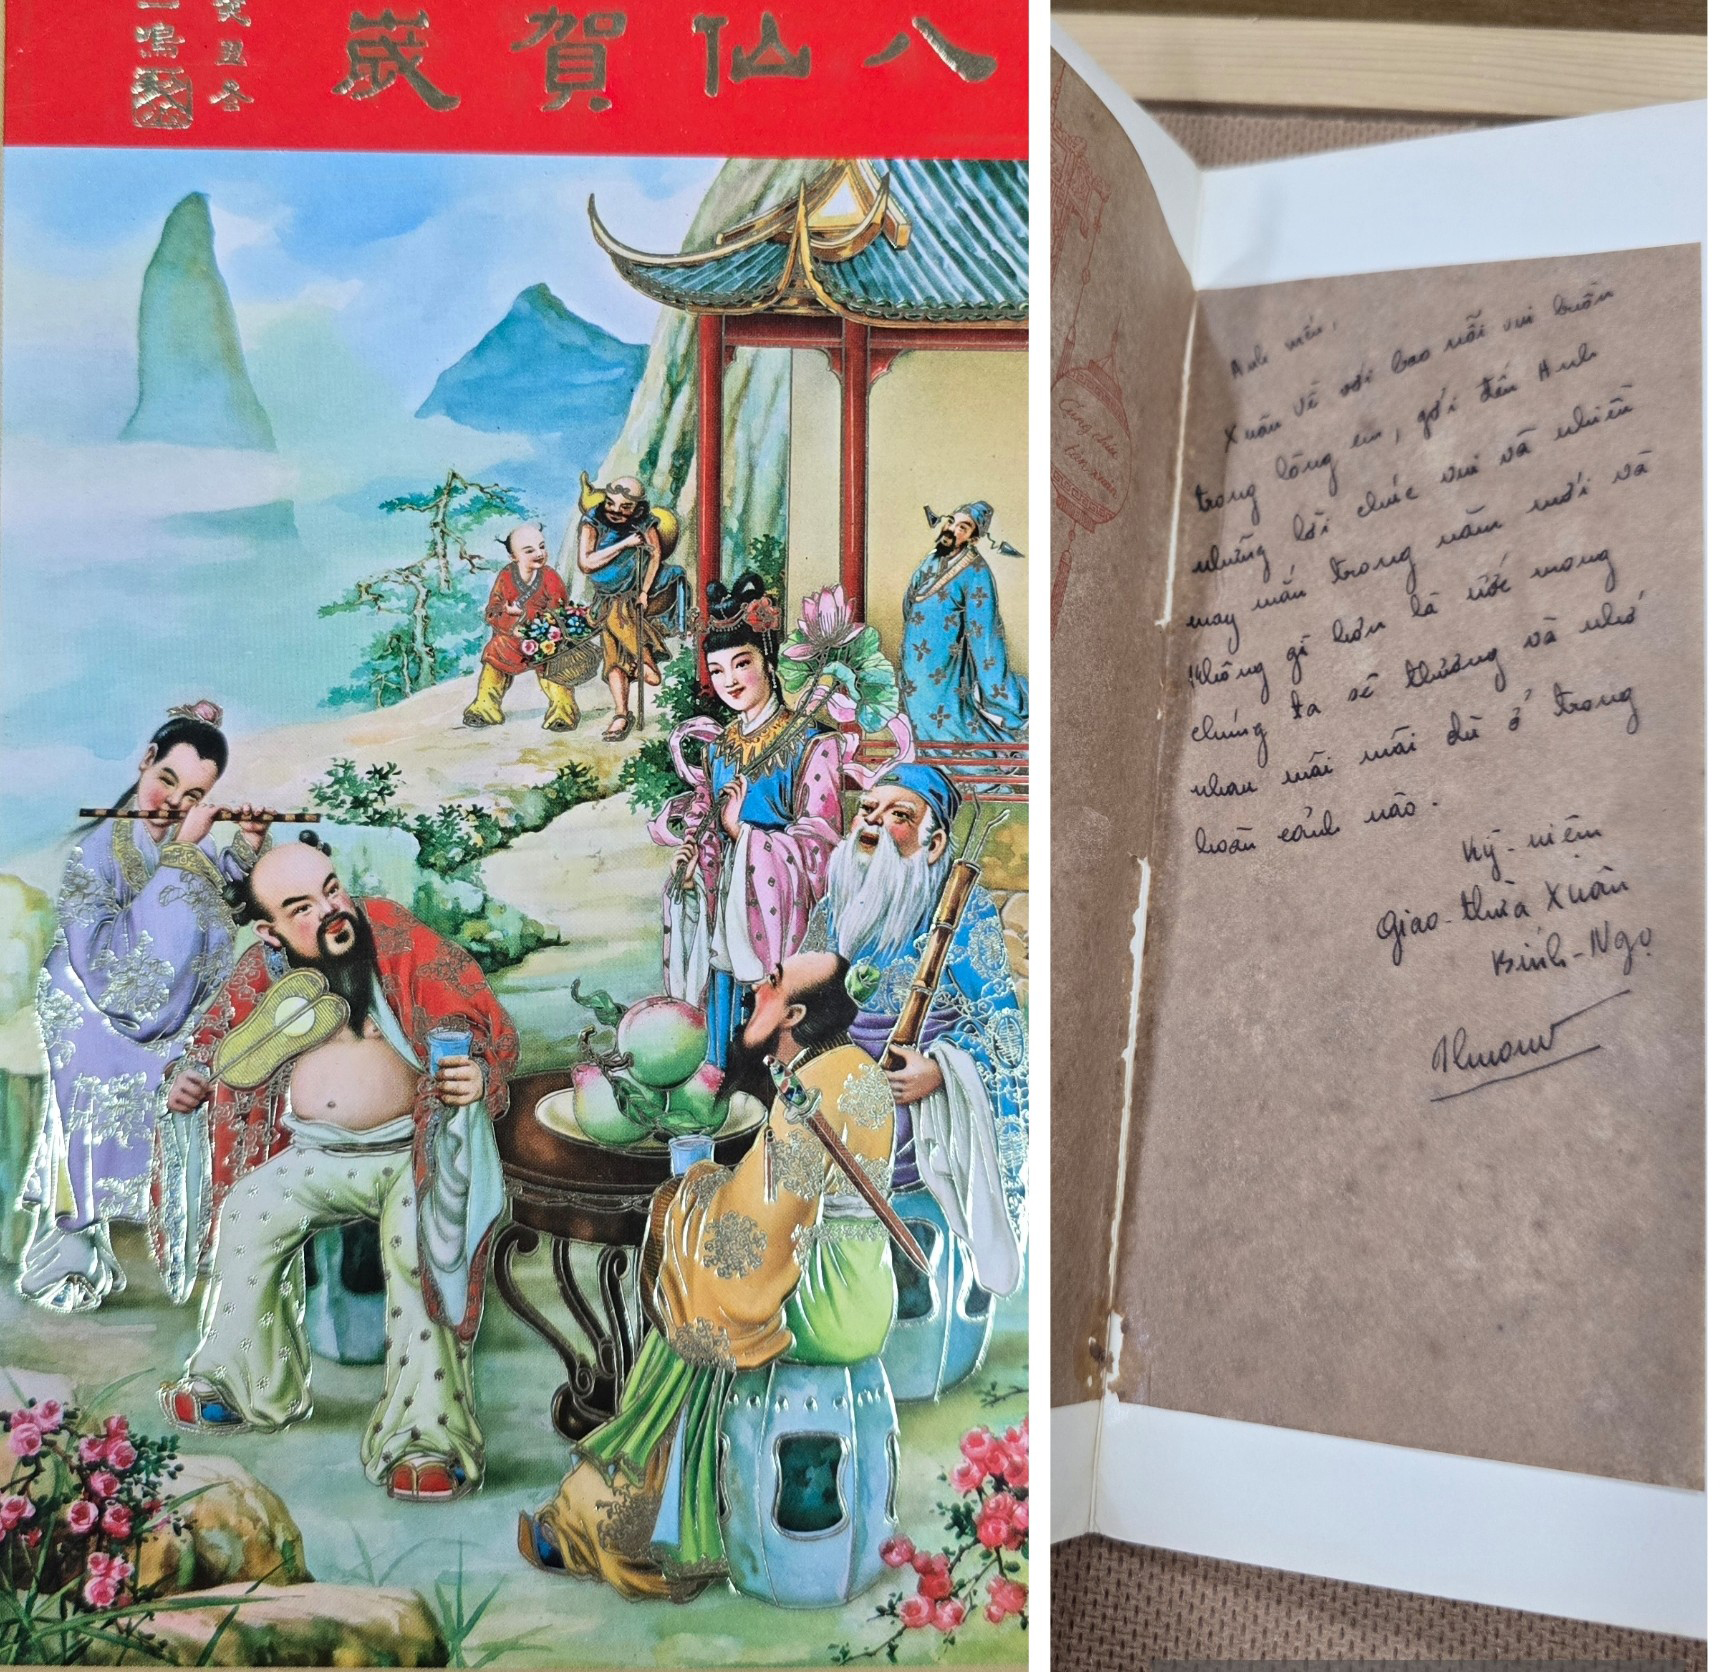 八仙賀歲
癸丑冬
一鳴
Cung chúc
tân xuân
Anh mến,
Xuân về với bao nỗi vui buồn
trong lòng em, gởi đến Anh
những lời chúc vui và nhiều
may mắn trong năm mới và
không gì hơn là ước mong
chúng ta sẽ thương và nhớ
nhau mãi mãi dù ở trong
hoàn cảnh nào.
Kỷ-niệm
Giao-thừa Xuân
Bính-Ngọ